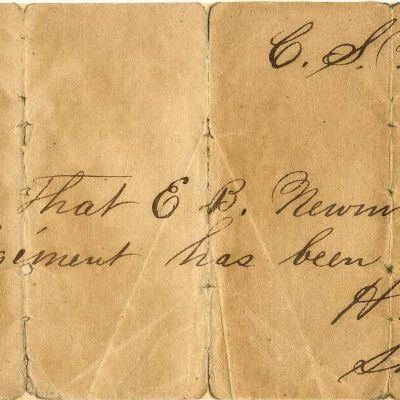 C. S.
That E B. Newm
giment has been
H